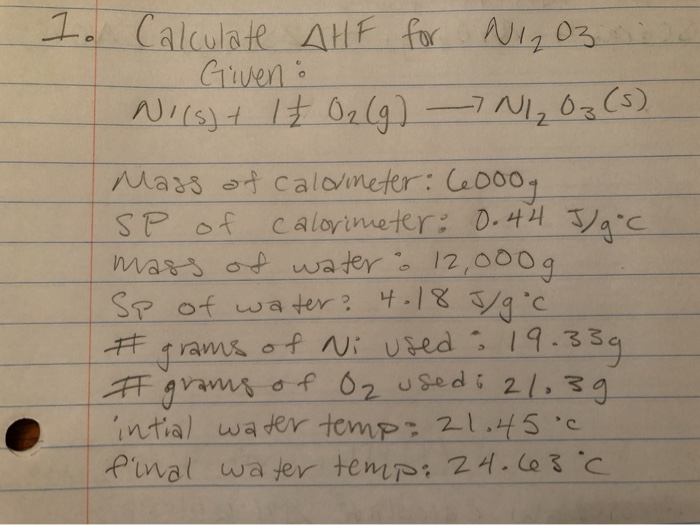 1. Calculate ΔHF for Ni2O3
Given:
Ni(s) + 1½ O2(g) → Ni2O3(s)
Mass of calorimeter: 6000g
SP of calorimeter: 0.44 J/g°C
mass of water: 12,000g
SP of water: 4.18 J/g°C
# grams of Ni used: 19.33g
# grams of O2 used: 21.3g
intial water temp: 21.45 °C
final water temp: 24.63 °C